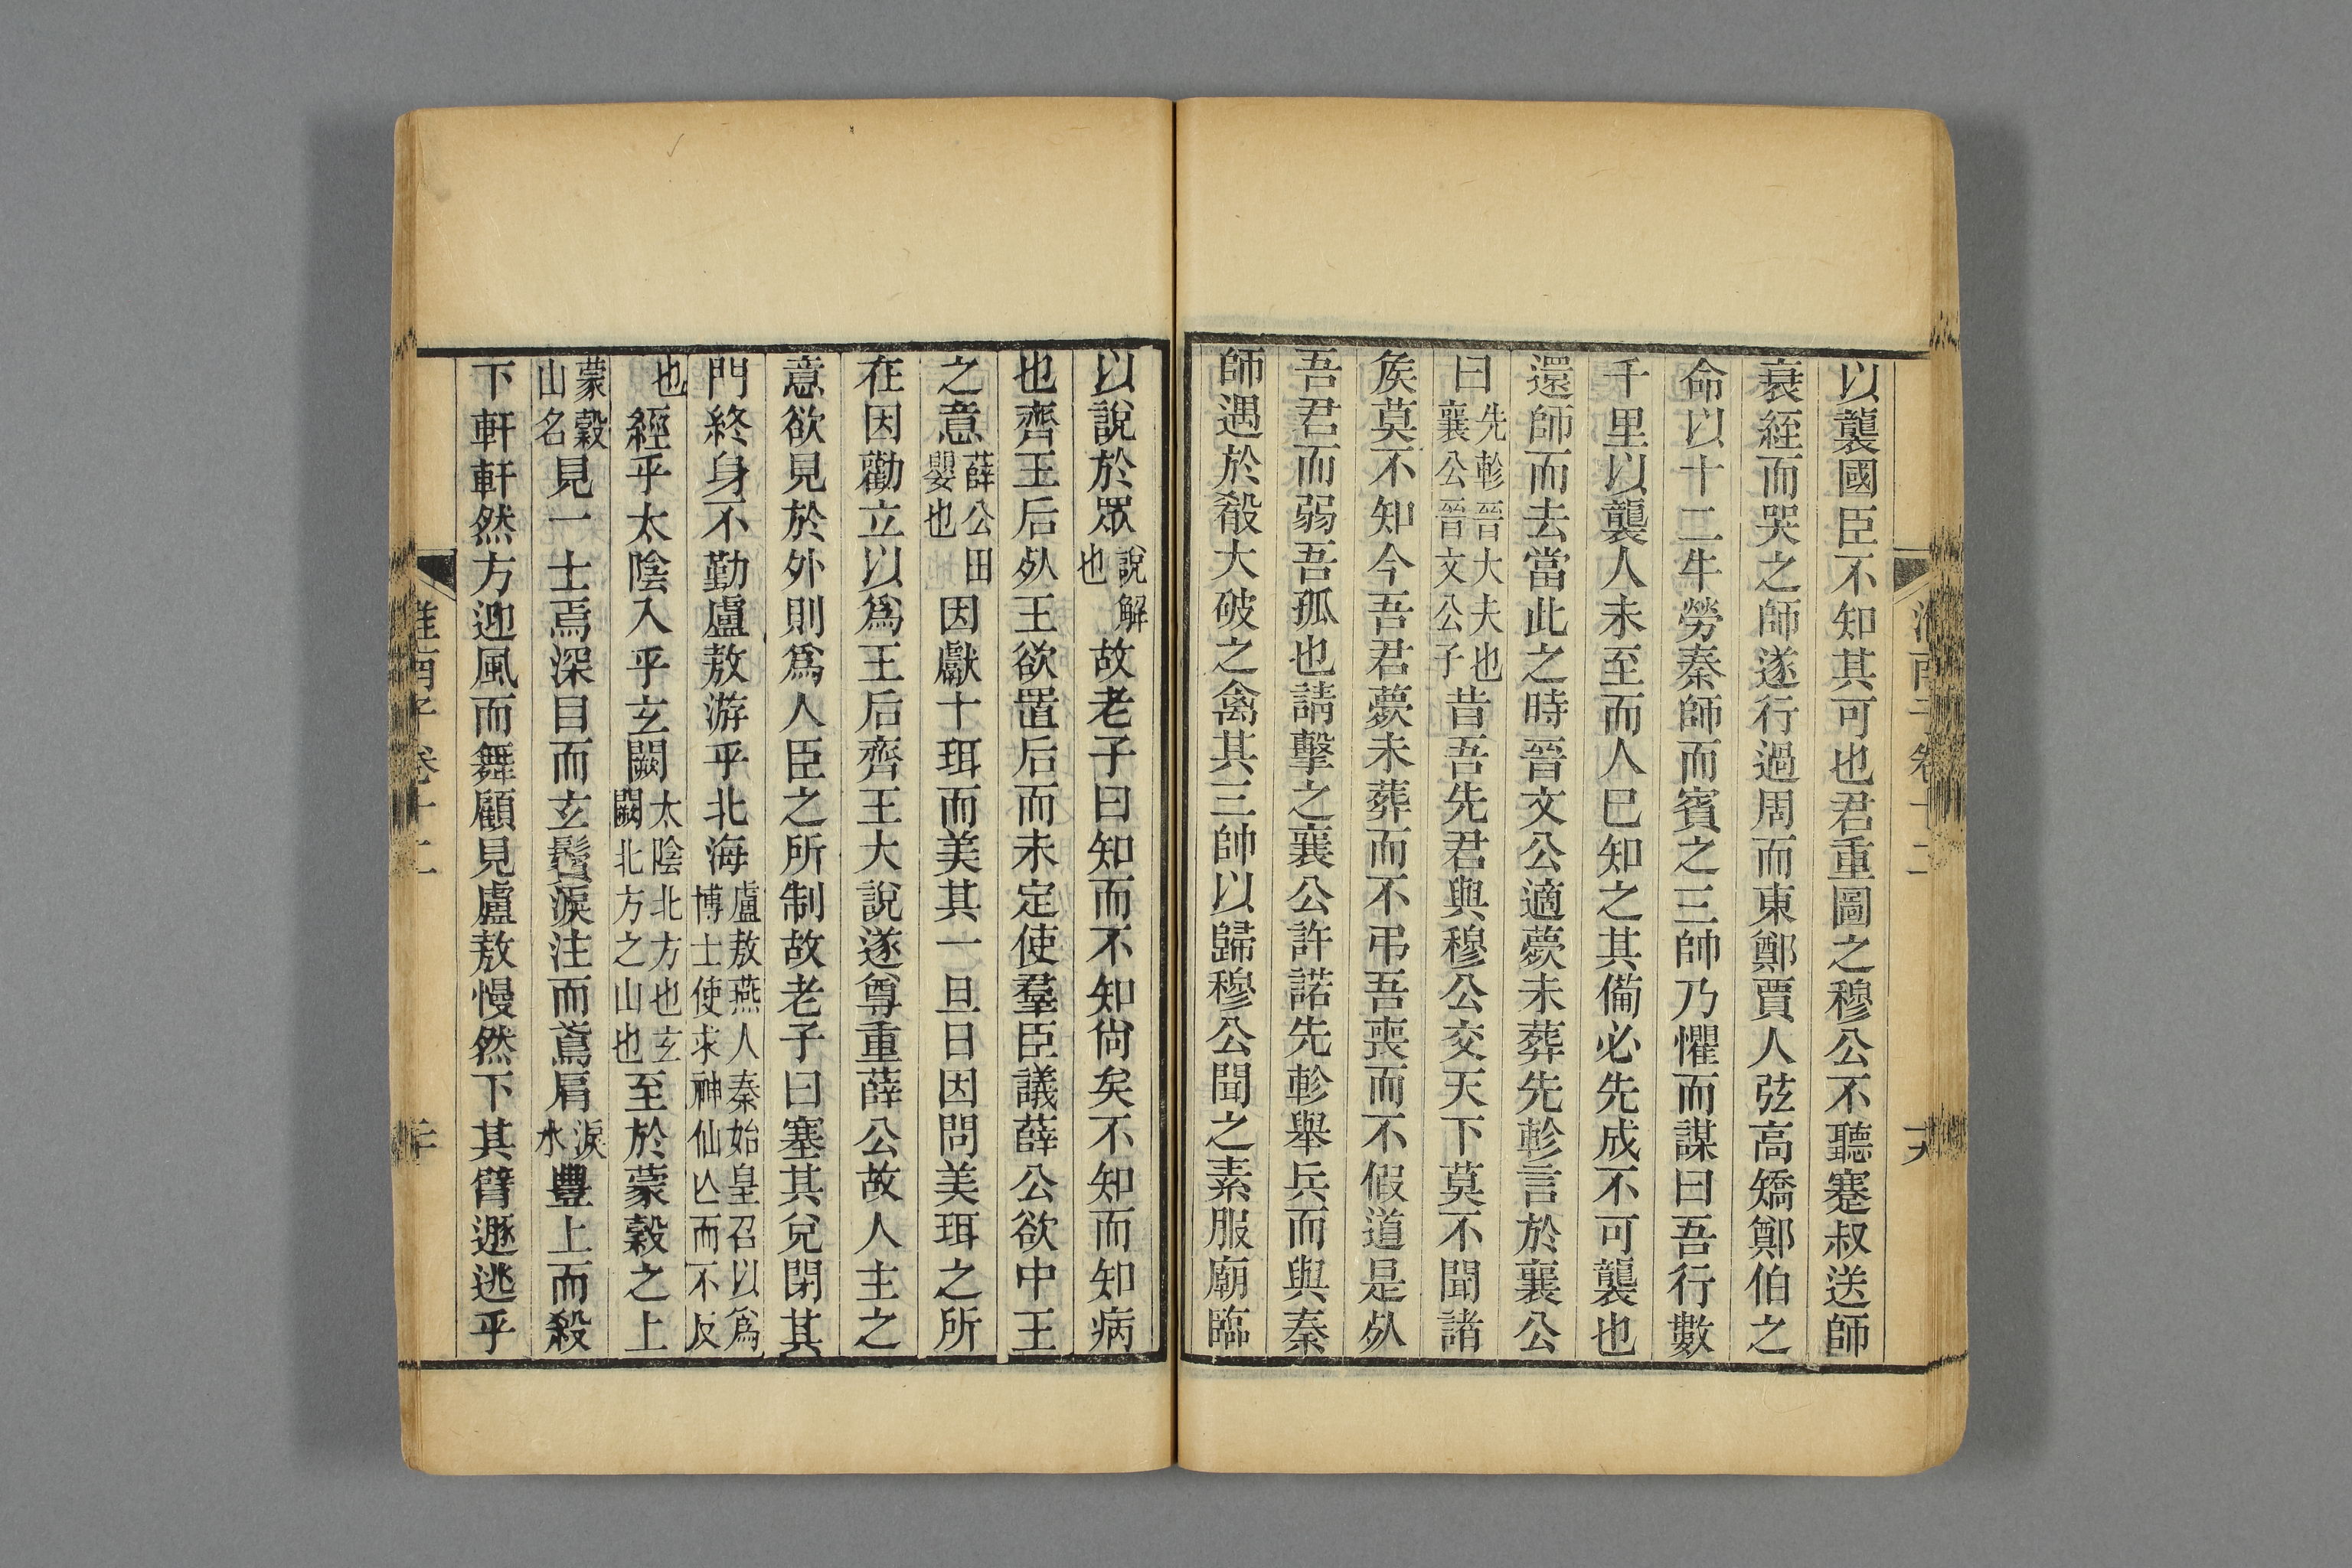 以襲國臣不知其可也君重圖之穆公不聽蹇叔送師
衰絰而哭之師遂行過周而東鄭賈人弦高矯鄭伯之
命以十二牛勞秦師而賓之三帥乃懼而謀曰吾行數
千里以襲人未至而人巳知之其備必先成不可襲也
還師而去當此之時晉文公適薨未葬先軫言於襄公
曰先軫晉大夫也襄公晉文公子昔吾先君與穆公交天下莫不聞諸
矦莫不知今吾君薨未葬而不弔吾喪而不假道是㱙
吾君而弱吾孤也請擊之襄公許諾先軫舉兵而與秦
師遇於殽大破之禽其三帥以歸穆公聞之素服廟臨
以說於眾說解也故老子曰知而不知尙矣不知而知病
也齊王后㱙王欲置后而未定使羣臣議薛公欲中王
之意薛公田嬰也因獻十珥而美其一旦日因問美珥之所
在因勸立以爲王后齊王大說遂尊重薛公故人主之
意欲見於外則爲人臣之所制故老子曰塞其兌閉其
門終身不勤盧敖游乎北海盧敖燕人秦始皇召以爲博士使求神仙亾而不反
也經乎太陰入乎玄闕太陰北方也玄闕北方之山也至於蒙穀之上
蒙穀山名見一士焉深目而玄鬢淚注而鳶肩淚水豐上而殺
下軒軒然方迎風而舞顧見盧敖慢然下其臂遯逃乎
淮南子卷十二